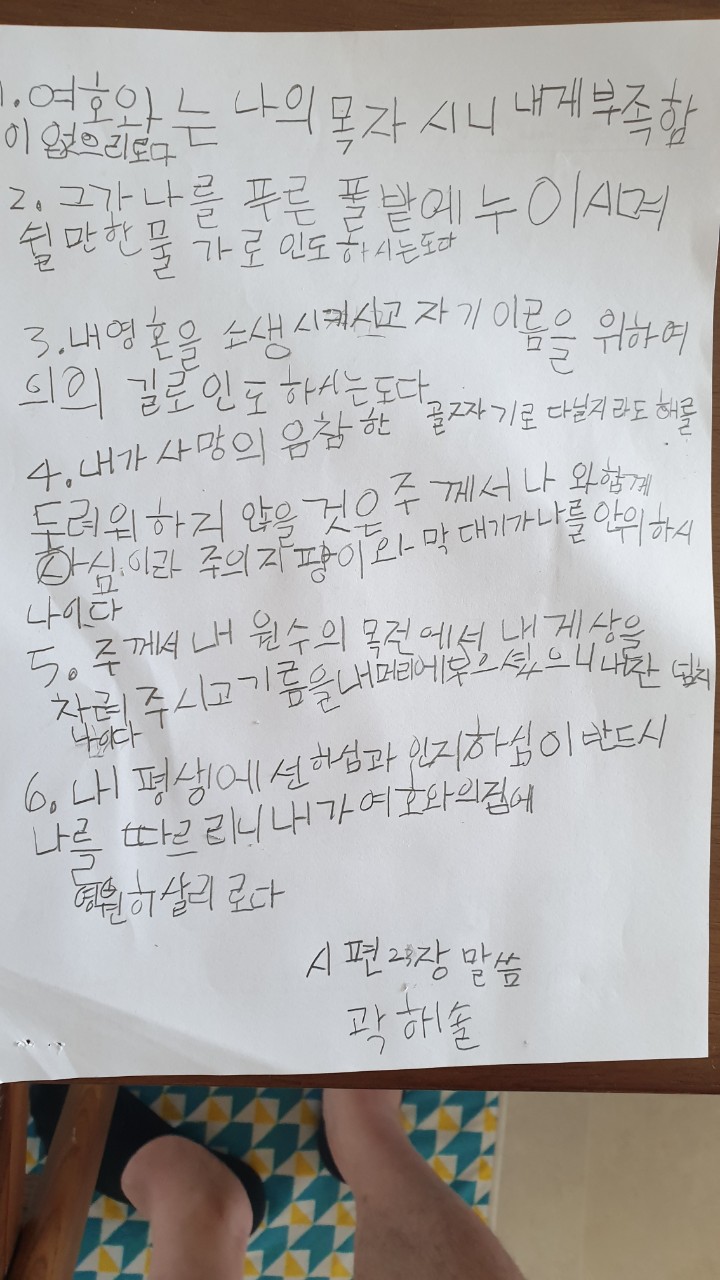 1.여호와는 나의 목자 시니 내게부족함
이 없으리로다
2. 그가나를 푸른 풀밭에누이시며
쉴만한물 가로인도하시는도다
3.내영혼을 소생시켜시고자기이름을 위하여
의의 길로인도하시는도다
4.내가사망의음참한 골자기로 다닐지라도 해를
두려워하지 않을것은주께서나와함께
하심이라 주의지팡이와막대기가나를안위하시
나이다
5. 주께서내원수의목전에서내게상을
차려주시고기름을내머리에부으셨으니내잔 넘치
나이다
6. 내평생에선하심과인자하심이반드시
나를 따르리니내가여호와의집에
영원히살리로다
시편23장말씀
곽해솔